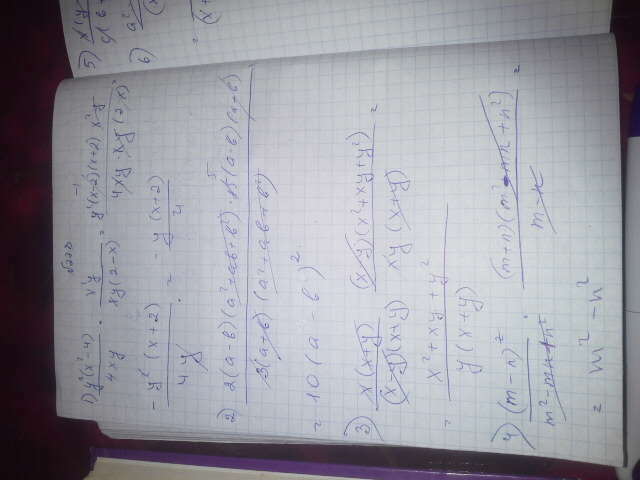 1) y²(x²-4) / 4xy · x²y / xy(2-x) = y²(x-2)(x+2) x²y / 4xy · xy(2-x)
- y²(x+2) / 4y = - y(x+2) / 4
2) 2(a-b)(a²+ab+b²) · 15(a-b)(a+b) / 3(a+b)(a²+ab+b²)
= 10(a-b)²
3) x(x+y) / (x-y)(x+y) · (x-y)(x²+xy+y²) / xy(x+y) =
= x²+xy+y² / y(x+y)
4) (m-n)² / m²-mn+n² · (m+n)(m²-mn+n²) / m-n =
= m²-n²
5)
6)